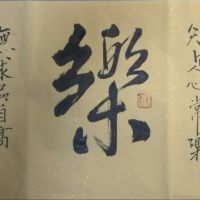 知足心常樂
樂
無求品自高